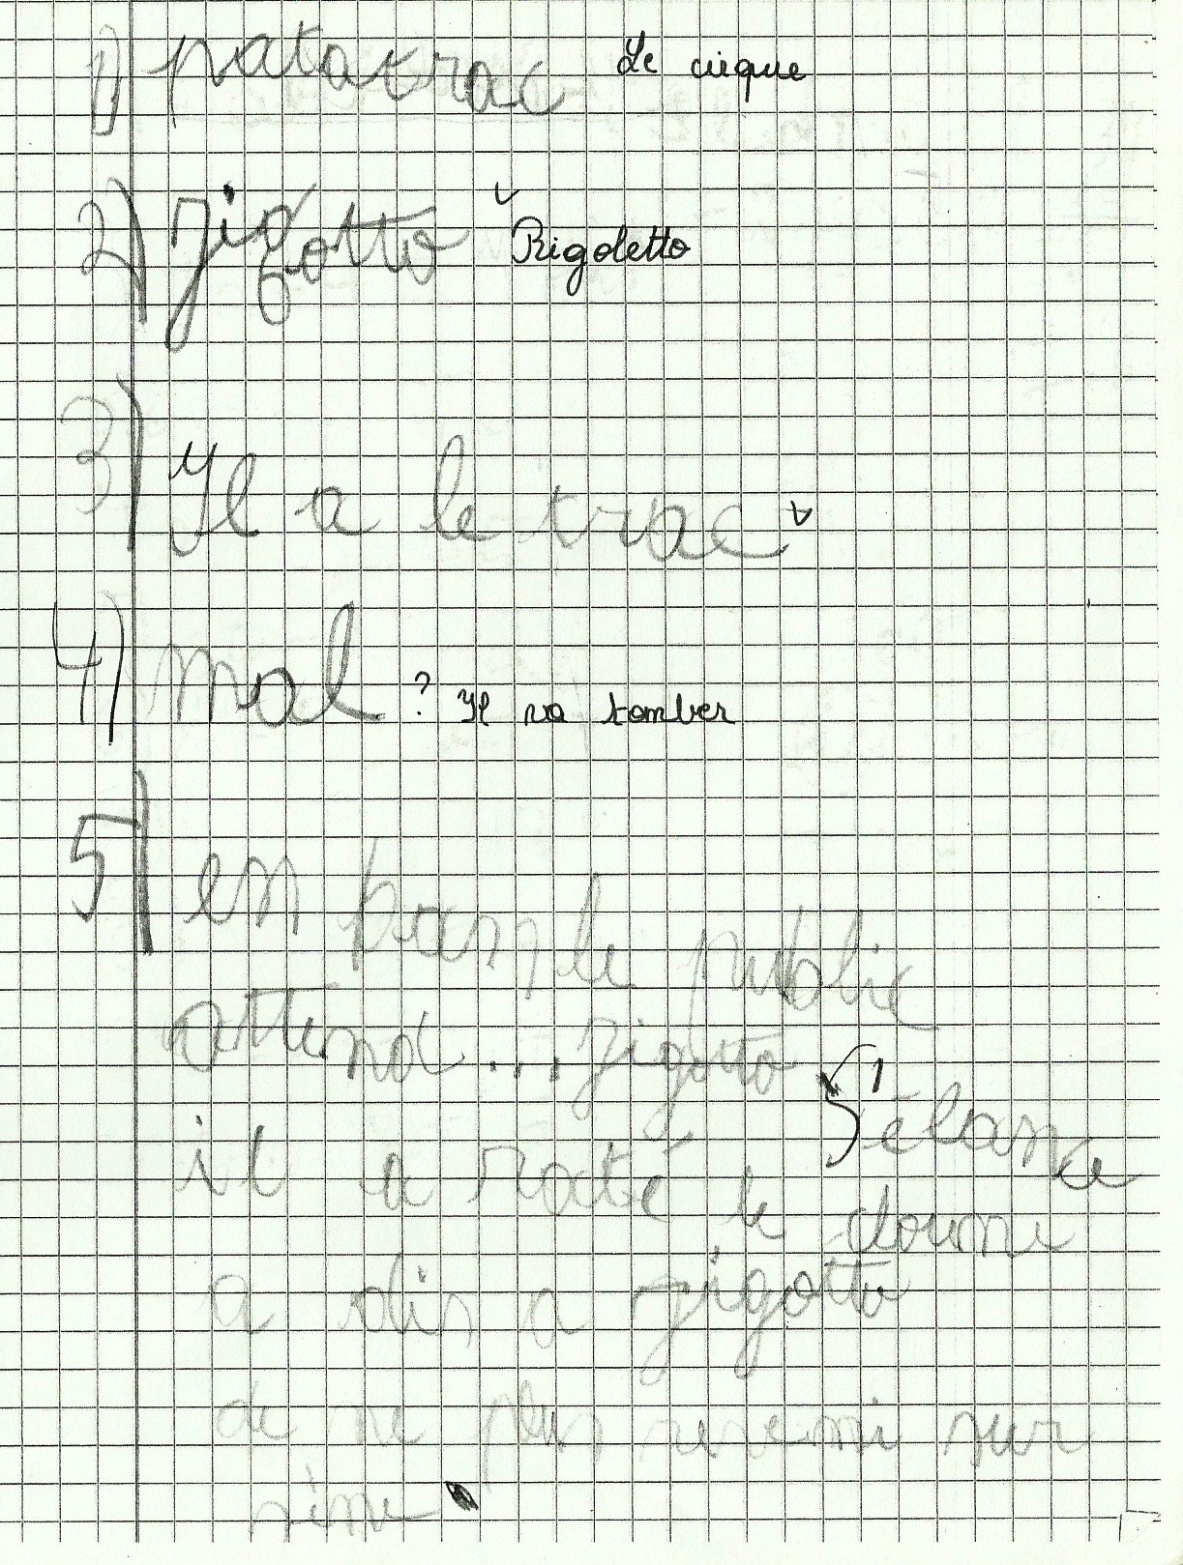 1) patatrac Le cirque
2) zigotto v Rigoletto
3) Il a le trac v
4) mal ? Il va tomber
5) en
le public
attend ... zigotto
s'élance
il a raté le
a dis a zigotto
de ne plus reveni sur